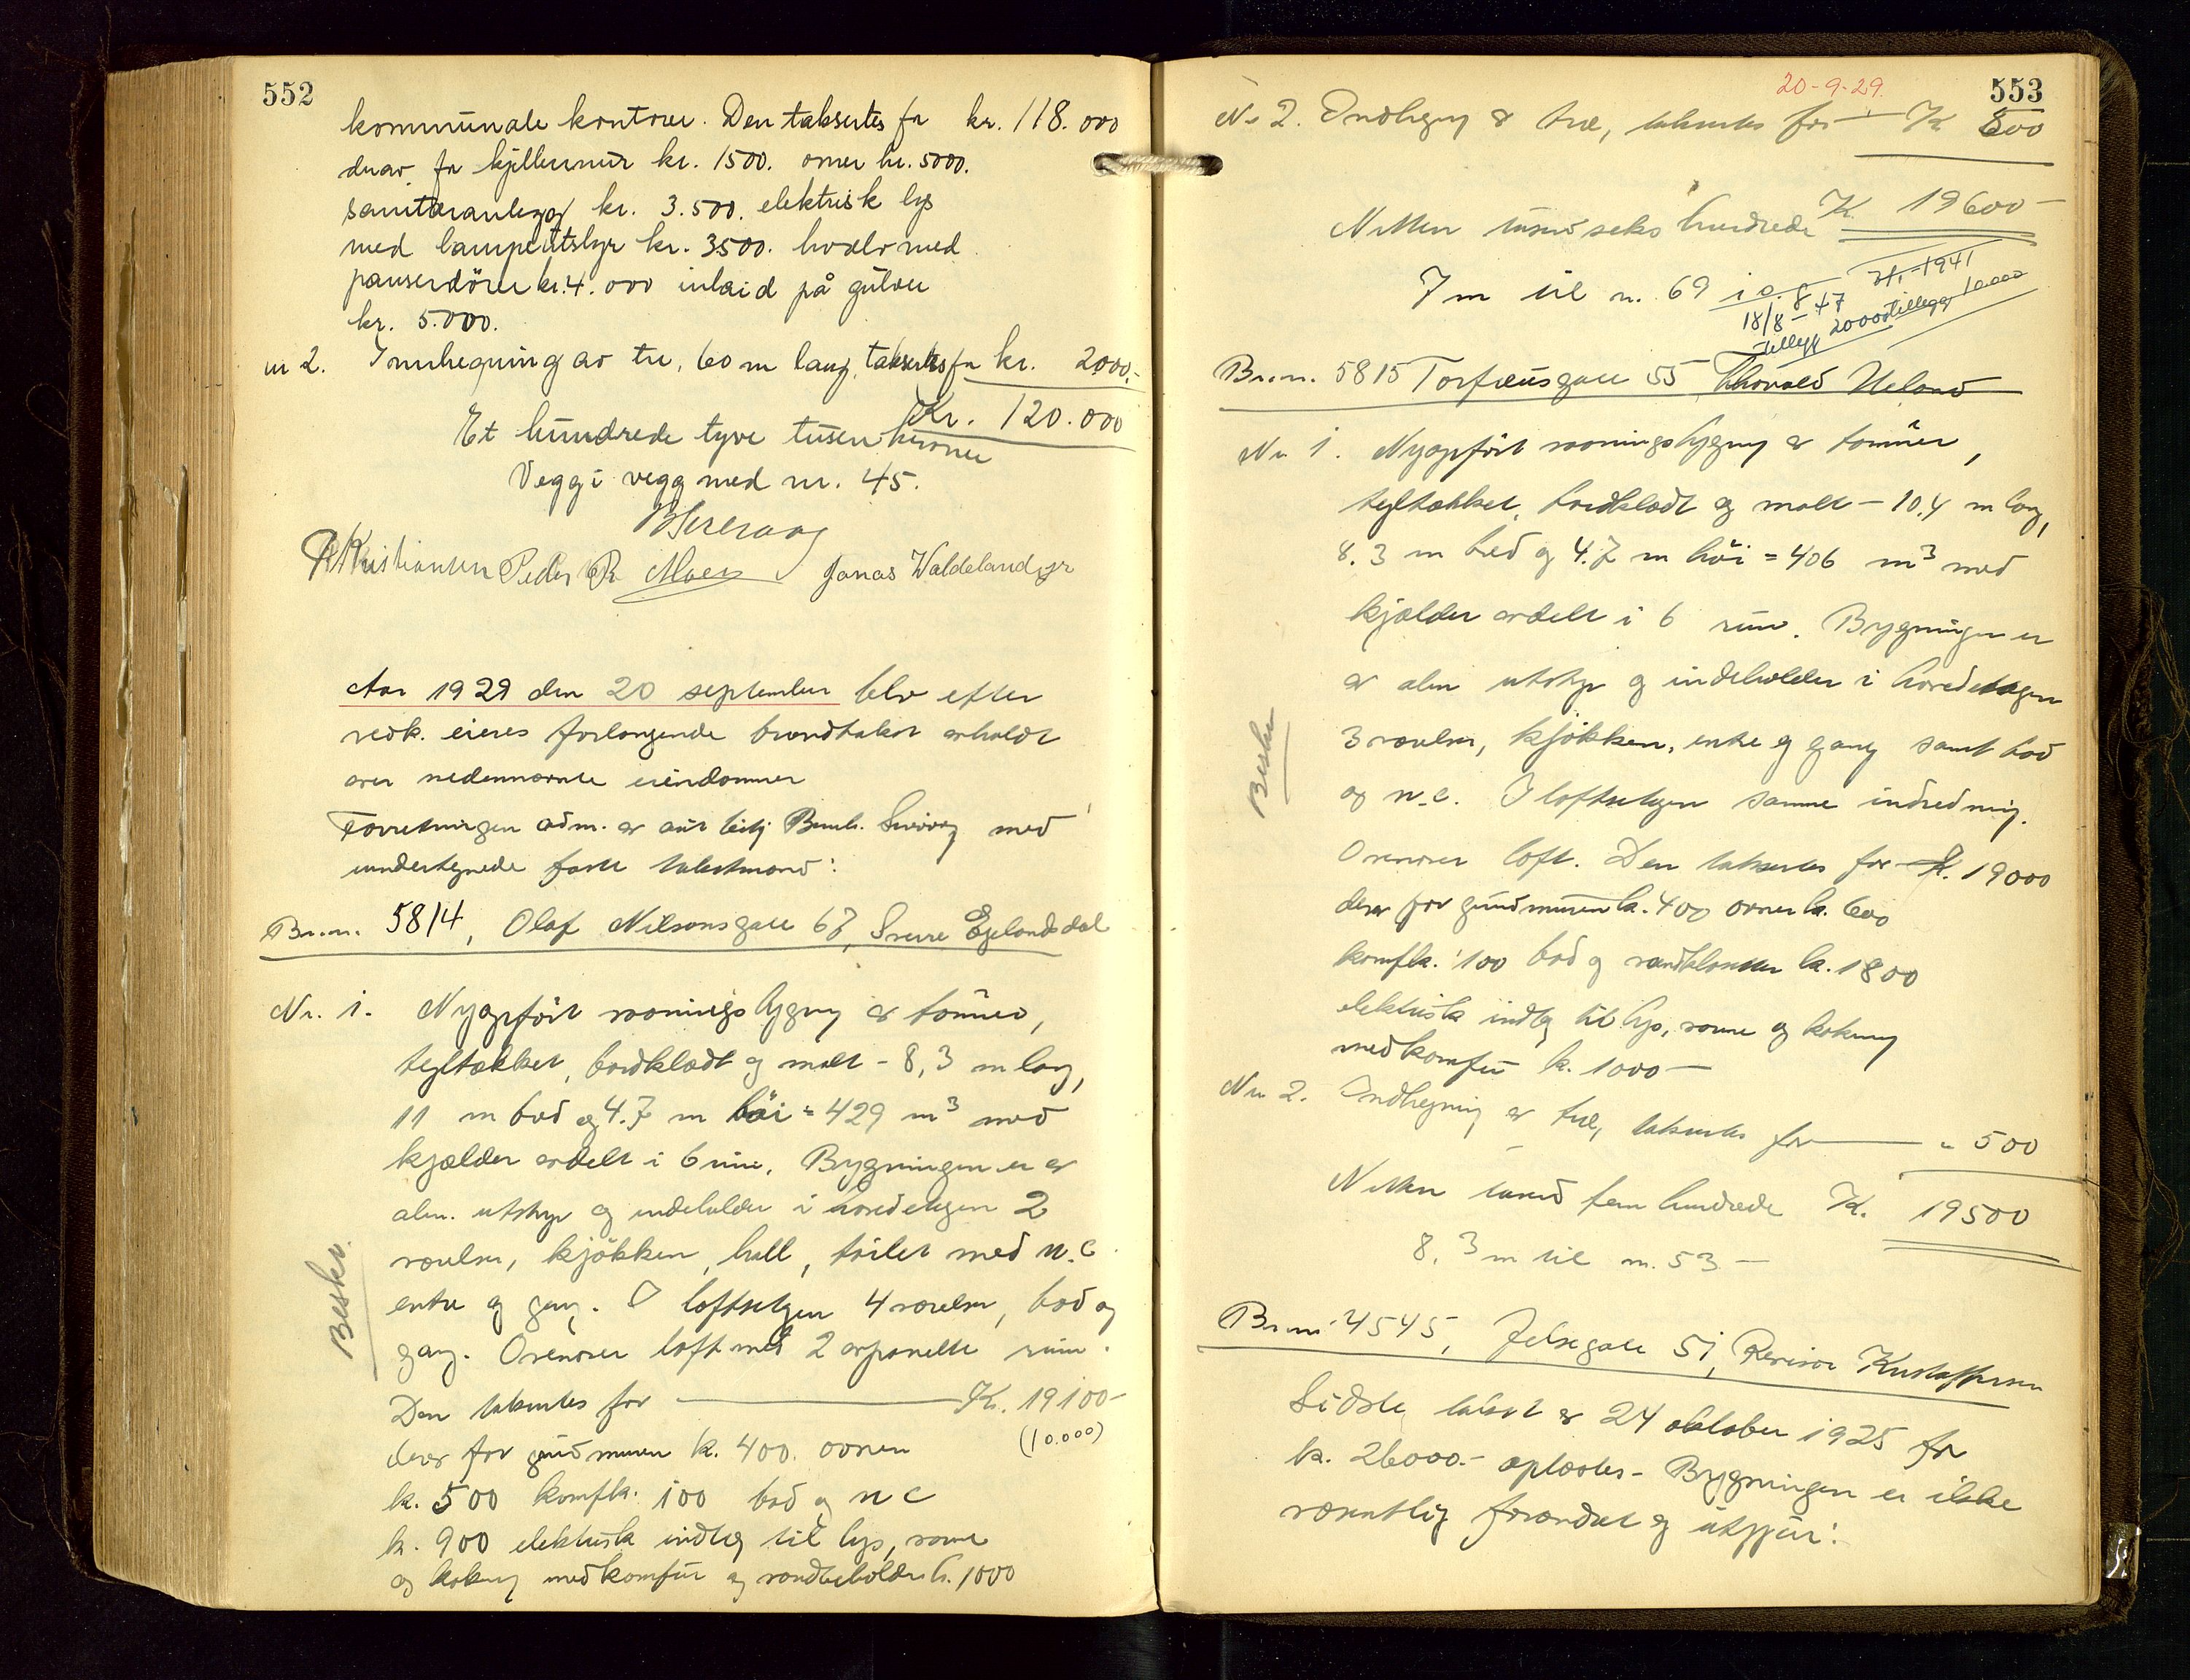 552
kommunale kontorer. Den taksertes for kr. 118.000
derav for kjellermur kr. 1500. ovner kr. 5000.
sanitæranlegg kr. 3.500. elektrisk lys
med lampeutstyr kr. 3500. hvelv med
panserdörer kr. 4.000 inlaid på gulver
kr. 5.000.
nr 2. Innhegning av tre, 60 m lang, taksertes for kr. 2000.-
Kr. 120.000
Et hundrede tyve tusen kroner
Vegg i vegg med nr. 45.
Kristiansen Peder R. Moen Jonas Waldeland jr
Aar 1929 den 20 september blev efter
vedk. eieres forlangende brandtakst avholdt
over nedennævnte eiendommer
Forretningen adm. av aut. Bernh. med
undertegnede faste takstmænd:
Br.nr. 5814, Olaf Nilsonsgate 67, Sverre Egelandsdal
Nr. 1. Nyopfört vaaningsbygning av tömmer,
tegltækket, bordklædt og malt - 8,3 m lang,
11 m bred og 4.7 m höi = 429 m³ med
kjælder avdelt i 6 rum. Bygningen er av
alm. utstyr og indeholder i hovedetagen 2
værelser, kjökken, hall, toilet med w.c.
entre og gang. I loftsetagen 4 værelser, bod og
gang. Ovenover loft med 2 avpanelte rum.
Beskr.
Den taksertes for — Kr. 19100-
(10.000)
derav for grundmuren kr. 400. ovnen
kr. 500 komfkr. 100 bad og w c
kr. 900 elektrisk indlæg til lys, varme
og kokning med komfur og vandbeholder kr. 1000
20-9-29.
553
Nr 2. Indhegning av træ, taksertes for — Kr 500
Kr. 19600-
Nitten tusind seks hundrede
7 m til nr. 69
1941
18/8 - 47
tillegg 20000 tillegg 10.000
Br.nr. 5815 Torfæusgate 55 Thorvald Ueland
Nr 1. Nyopfört vaaningsbygning av tömmer,
tegltækket, bordklædt og malt - 10.4 m lang,
8.3 m bred og 4.7 m höi = 406 m³ med
kjælder avdelt i 6 rum. Bygningen er
av alm utstyr og indeholder i hovedetagen
3 værelser, kjökken, entre og gang samt bad
og w.c. I loftsetagen samme indredning.
Beskr
Ovenover loft. Den taksertes for Kr. 19000
derav for grundmuren kr. 400 ovner kr. 600
komfkr. 100 bad og vandklosetter kr. 1800
elektrisk indlæg til lys, varme og kokning
med komfur kr. 1000 —
Nr 2. Indhegning av træ, taksertes for — " 500
Nitten tusind fem hundrede Kr. 19500
8.3 m til nr. 53 —
Br.nr 4545, Jelsegate 51, Revisor Kristoffersen
Sidste takst av 24 oktober 1925 for
kr. 26000.- oplæstes - Bygningen er ikke
væsentlig forandret og utgjør: